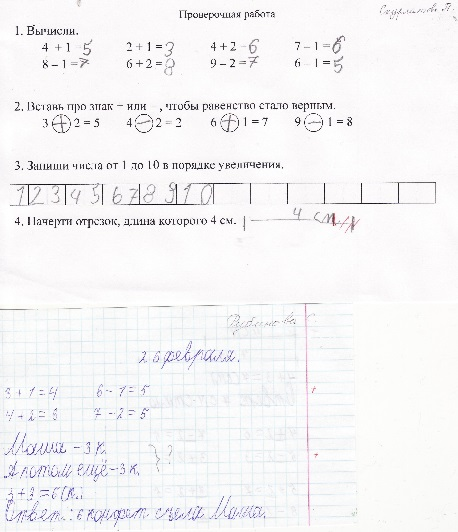 Проверочная работа
1. Вычисли.
4 + 1 = 5 2 + 1 = 3 4 + 2 = 6 7 – 1 = 6
8 – 1 = 7 6 + 2 = 8 9 – 2 = 7 6 – 1 = 5
2. Вставь про знак + или – , чтобы равенство стало верным.
3 + 2 = 5 4 – 2 = 2 6 + 1 = 7 9 – 1 = 8
3. Запиши числа от 1 до 10 в порядке увеличения.
1 2 3 4 5 6 7 8 9 10
4. Начерти отрезок, длина которого 4 см.
4 см
26 февраля.
3 + 1 = 4 6 - 1 = 5
4 + 2 = 6 7 - 2 = 5
Маша - 3 к.
А потом ещё - 3 к. } ?
3 + 3 = 6 (к.)
Ответ: 6 конфет съела Маша.